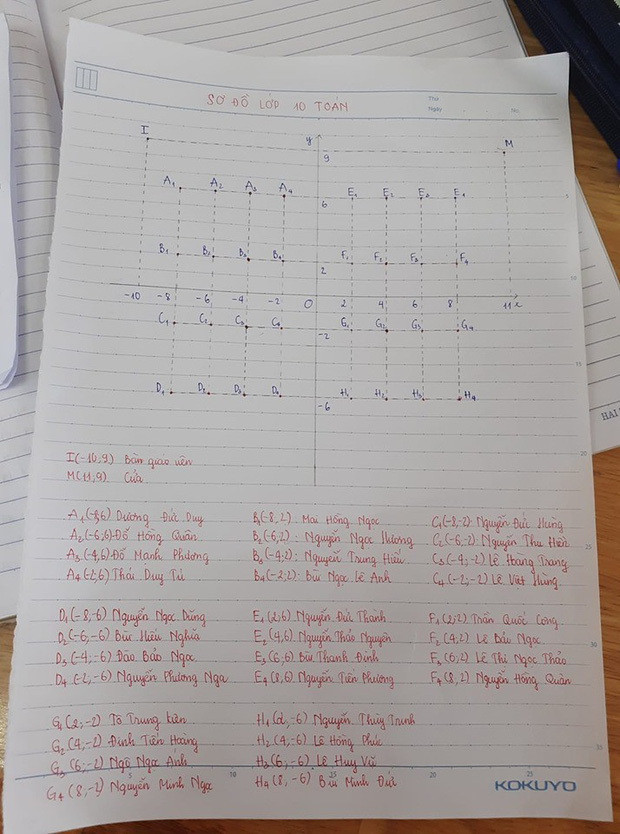 Thứ
Ngày No.
SƠ ĐỒ LỚP 10 TOÁN
I y M
9
A₁ A₂ A₃ A₄ E₁ E₂ E₃ E₄
6
B₁ B₂ B₃ B₄ F₁ F₂ F₃ F₄
2
-10 -8 -6 -4 -2 O 2 4 6 8 11 x
C₁ C₂ C₃ C₄ G₁ G₂ G₃ G₄
-2
D₁ D₂ D₃ D₄ H₁ H₂ H₃ H₄
-6
I(-10,9) Bàn giáo viên
M(11,9) Cửa
A₁(-8,6) Dương Đức Duy
A₂(-6,6) Đỗ Hồng Quân
A₃(-4,6) Đỗ Mạnh Phương
A₄(-2,6) Thái Duy Tú
B₁(-8,2) Mai Hồng Ngọc
B₂(-6,2): Nguyễn Ngọc Hương
B₃(-4,2): Nguyễn Trung Hiếu
B₄(-2,2): Bùi Ngọc Lê Anh
C₁(-8,-2): Nguyễn Đức Hưng
C₂(-6,-2) Nguyễn Thu Hiền
C₃(-4,-2) Lê Hoàng Trang
C₄(-2,-2) Lê Việt Hùng
D₁(-8,-6) Nguyễn Ngọc Dũng
D₂(-6,-6) Bùi Hiếu Nghĩa
D₃(-4,-6) Đào Bảo Ngọc
D₄(-2,-6) Nguyễn Phương Nga
E₁(2,6) Nguyễn Đức Thanh
E₂(4,6) Nguyễn Thảo Nguyên
E₃(6,6) Bùi Thanh Đính
E₄(8,6) Nguyễn Tiến Phương
F₁(2,2) Trần Quốc Công
F₂(4,2) Lê Bảo Ngọc
F₃(6,2) Lê Thị Ngọc Thảo
F₄(8,2) Nguyễn Hồng Quân
G₁(2,-2) Tô Trung kiên
G₂(4,-2) Đinh Tiên Hoàng
G₃(6,-2) Ngô Ngọc Ánh
G₄(8,-2) Nguyễn Minh Ngọc
H₁(2,-6) Nguyễn Thùy Trinh
H₂(4,-6) Lê Hồng Phúc
H₃(6,-6) Lê Huy Vũ
H₄(8,-6) Bùi Minh Đức
KOKUYO